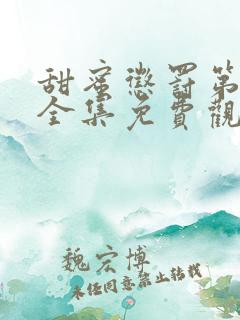 甜蜜懲罰第
全集免費觀
魏宏博
未经同意禁止转载